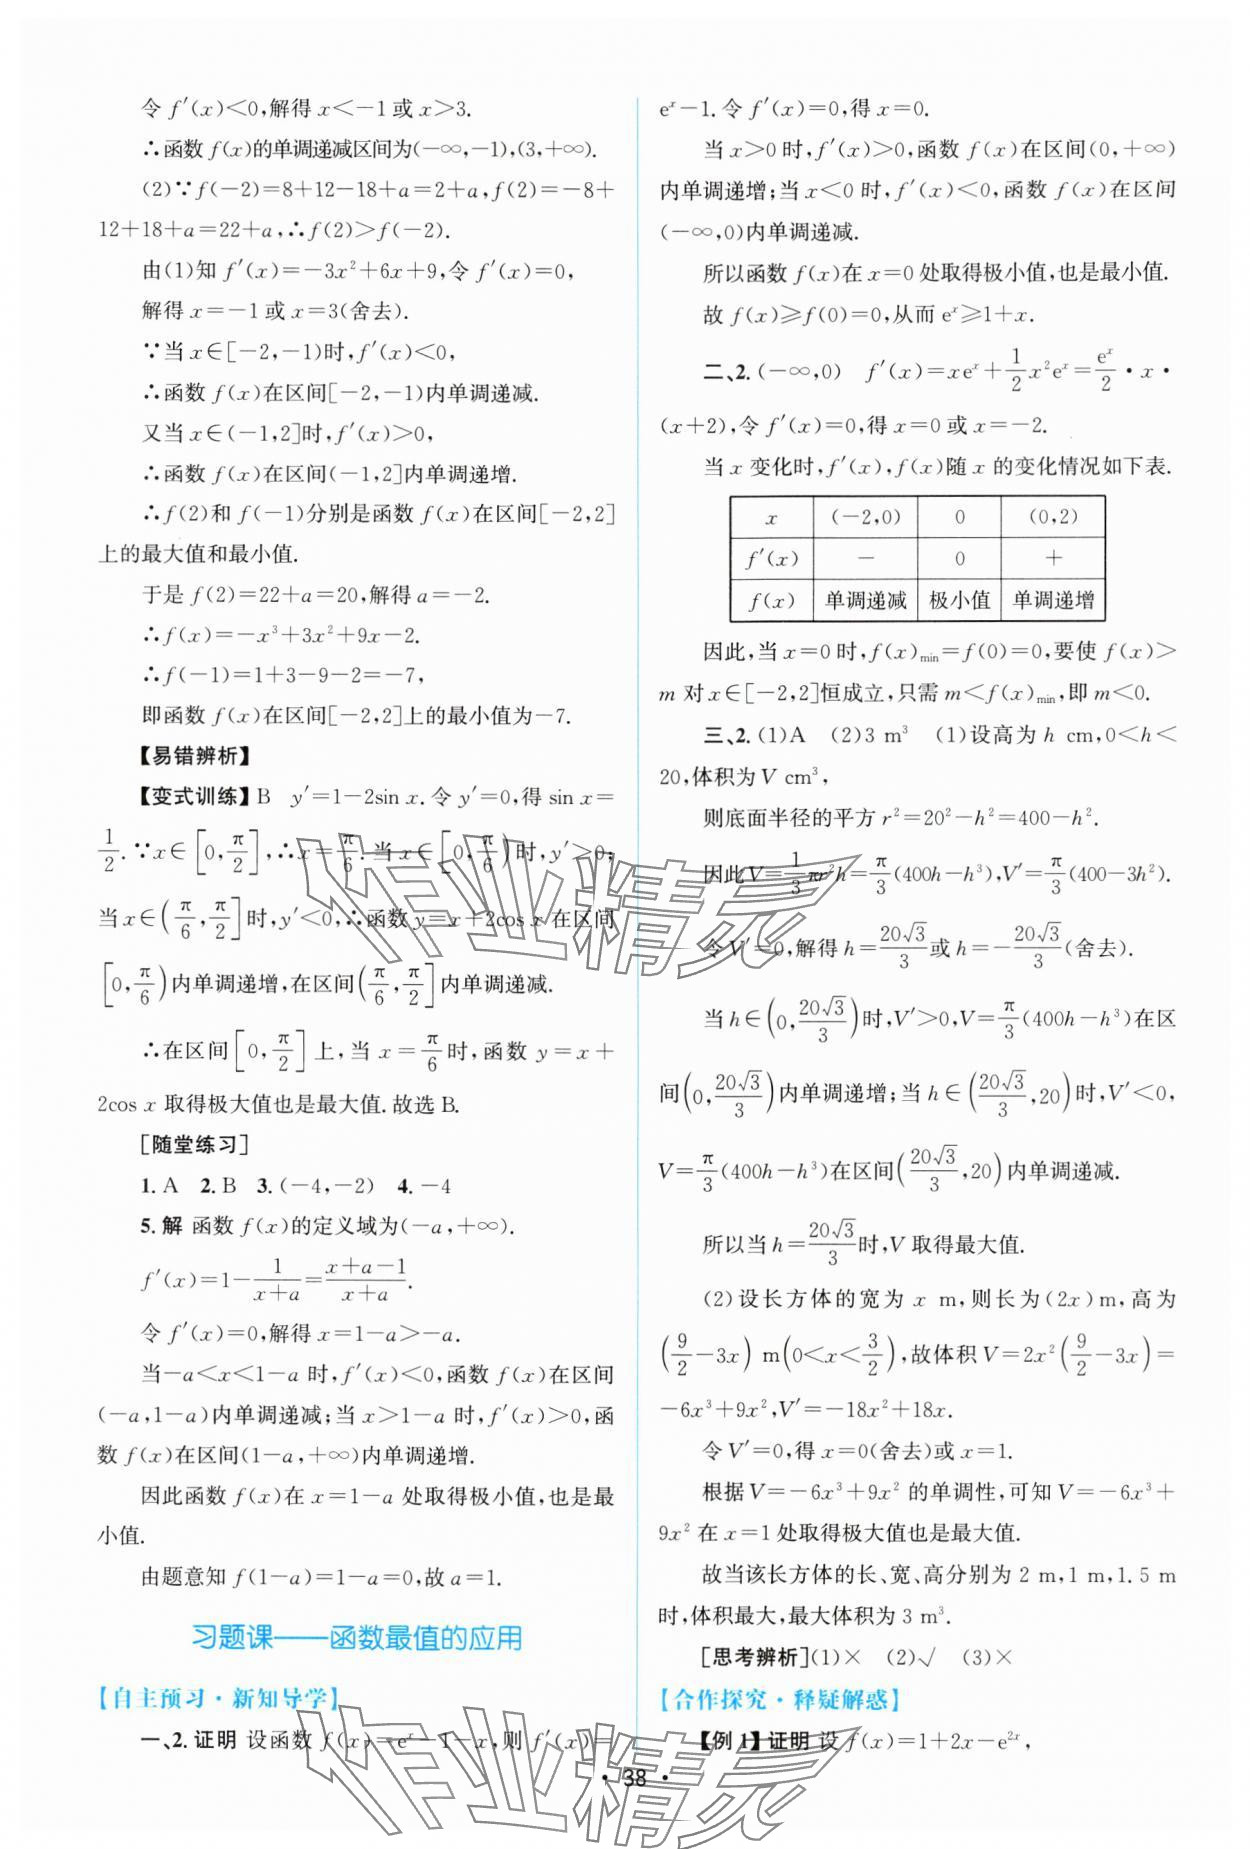 令 f′(x)<0,解得 x<-1 或 x>3.
∴函数 f(x)的单调递减区间为(-∞,-1),(3,+∞).
(2)∵f(-2)=8+12-18+a=2+a,f(2)=-8+
12+18+a=22+a,∴f(2)>f(-2).
由(1)知 f′(x)=-3x²+6x+9,令 f′(x)=0,
解得 x=-1 或 x=3(舍去).
∵当 x∈[-2,-1)时,f′(x)<0,
∴函数 f(x)在区间[-2,-1)内单调递减.
又当 x∈(-1,2]时,f′(x)>0,
∴函数 f(x)在区间(-1,2]内单调递增.
∴f(2)和 f(-1)分别是函数 f(x)在区间[-2,2]
上的最大值和最小值.
于是 f(2)=22+a=20,解得 a=-2.
∴f(x)=-x³+3x²+9x-2.
∴f(-1)=1+3-9-2=-7,
即函数 f(x)在区间[-2,2]上的最小值为-7.
【易错辨析】
【变式训练】B y′=1-2sin x.令 y′=0,得 sin x=
1/2.∵x∈[0,π/2],∴x=π/6.当 x∈[0,π/6)时,y′>0;
当 x∈(π/6,π/2]时,y′<0,∴函数 y=x+2cos x 在区间
[0,π/6)内单调递增,在区间(π/6,π/2]内单调递减.
∴在区间[0,π/2]上,当 x=π/6时,函数 y=x+
2cos x 取得极大值也是最大值.故选 B.
[随堂练习]
1.A 2.B 3.(-4,-2) 4.-4
5.解 函数 f(x)的定义域为(-a,+∞).
f′(x)=1-1/(x+a)=(x+a-1)/(x+a).
令 f′(x)=0,解得 x=1-a>-a.
当-a<x<1-a 时,f′(x)<0,函数 f(x)在区间
(-a,1-a)内单调递减;当 x>1-a 时,f′(x)>0,函
数 f(x)在区间(1-a,+∞)内单调递增.
因此函数 f(x)在 x=1-a 处取得极小值,也是最
小值.
由题意知 f(1-a)=1-a=0,故 a=1.
习题课——函数最值的应用
【自主预习·新知导学】
一、2.证明 设函数 f(x)=eˣ-1-x,则 f′(x)=
eˣ-1.令 f′(x)=0,得 x=0.
当 x>0 时,f′(x)>0,函数 f(x)在区间(0,+∞)
内单调递增;当 x<0 时,f′(x)<0,函数 f(x)在区间
(-∞,0)内单调递减.
所以函数 f(x)在 x=0 处取得极小值,也是最小值.
故 f(x)≥f(0)=0,从而 eˣ≥1+x.
二、2.(-∞,0) f′(x)=xeˣ+1/2x²eˣ=eˣ/2·x·
(x+2),令 f′(x)=0,得 x=0 或 x=-2.
当 x 变化时,f′(x),f(x)随 x 的变化情况如下表.
x (-2,0) 0 (0,2)
f′(x) - 0 +
f(x) 单调递减 极小值 单调递增
因此,当 x=0 时,f(x)min=f(0)=0,要使 f(x)>
m 对 x∈[-2,2]恒成立,只需 m<f(x)min,即 m<0.
三、2.(1)A (2)3 m³ (1)设高为 h cm,0<h<
20,体积为 V cm³,
则底面半径的平方 r²=20²-h²=400-h².
因此 V=1/3πr²h=π/3(400h-h³),V′=π/3(400-3h²).
令 V′=0,解得 h=20√3/3或 h=-20√3/3(舍去).
当 h∈(0,20√3/3)时,V′>0,V=π/3(400h-h³)在区
间(0,20√3/3)内单调递增;当 h∈(20√3/3,20)时,V′<0,
V=π/3(400h-h³)在区间(20√3/3,20)内单调递减.
所以当 h=20√3/3时,V 取得最大值.
(2)设长方体的宽为 x m,则长为(2x)m,高为
(9/2-3x) m(0<x<3/2),故体积 V=2x²(9/2-3x)=
-6x³+9x²,V′=-18x²+18x.
令 V′=0,得 x=0(舍去)或 x=1.
根据 V=-6x³+9x² 的单调性,可知 V=-6x³+
9x² 在 x=1 处取得极大值也是最大值.
故当该长方体的长、宽、高分别为 2 m,1 m,1.5 m
时,体积最大,最大体积为 3 m³.
[思考辨析](1)× (2)√ (3)×
【合作探究·释疑解惑】
【例 1】证明 设 f(x)=1+2x-e²ˣ,
·38·
作业精灵
作业精灵